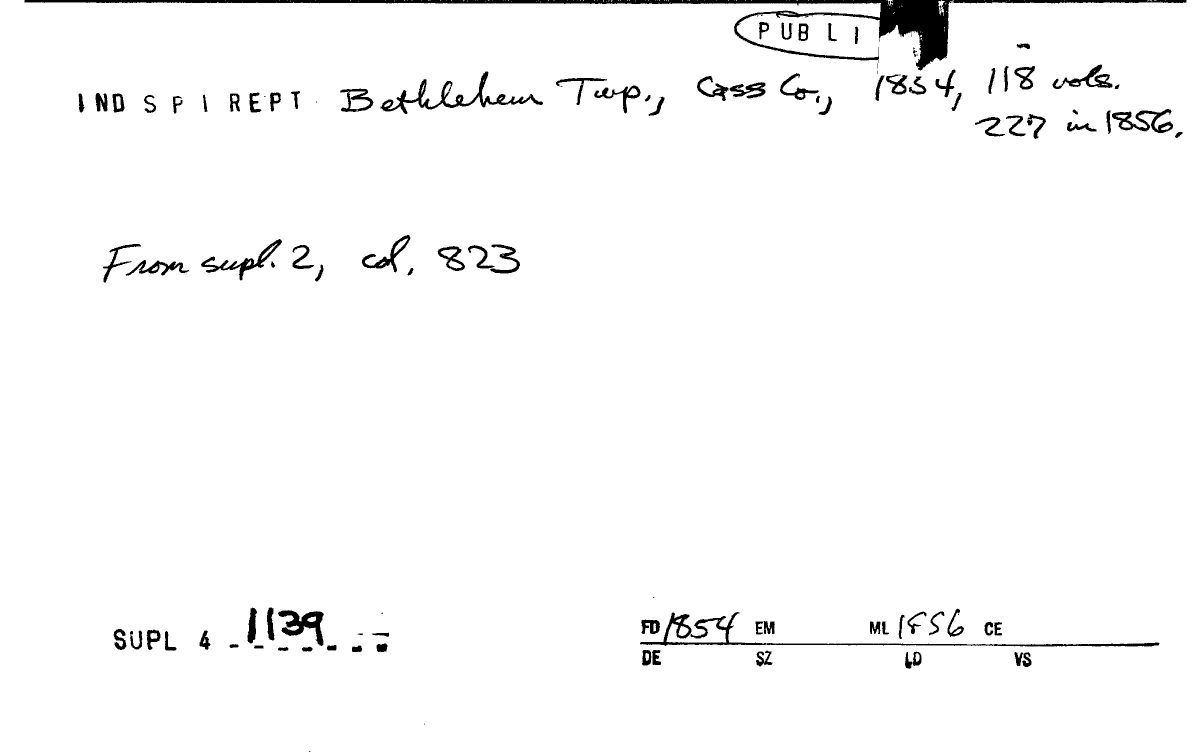 PUBLI
INDSPIREPT Bethlehem Twp., Cass Co., 1854, 118 vols.
227 in 1856.
From supl. 2, col. 823
SUPL 4 1139
FD 1854 EM ML 1856 CE
DE SZ LD VS